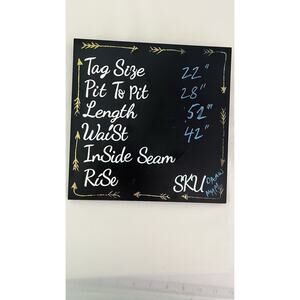 Tag Size 22"
Pit To Pit 28"
Length 52"
Waist 42"
InSide Seam
RiSe SKU